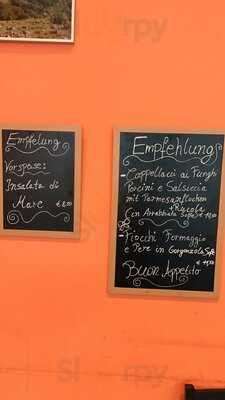 Empfelung
Vorspeise:
Insalata di
Mare
Empfehlung
- Cappellacci ai Funghi
Porcini e Salsiccia
mit Parmesanflocken
+ Rucola
(in Arrabbiata Soße)
- Fiocchi Formaggio
e Pere in Gorgonzola Soße
Buon Appetito